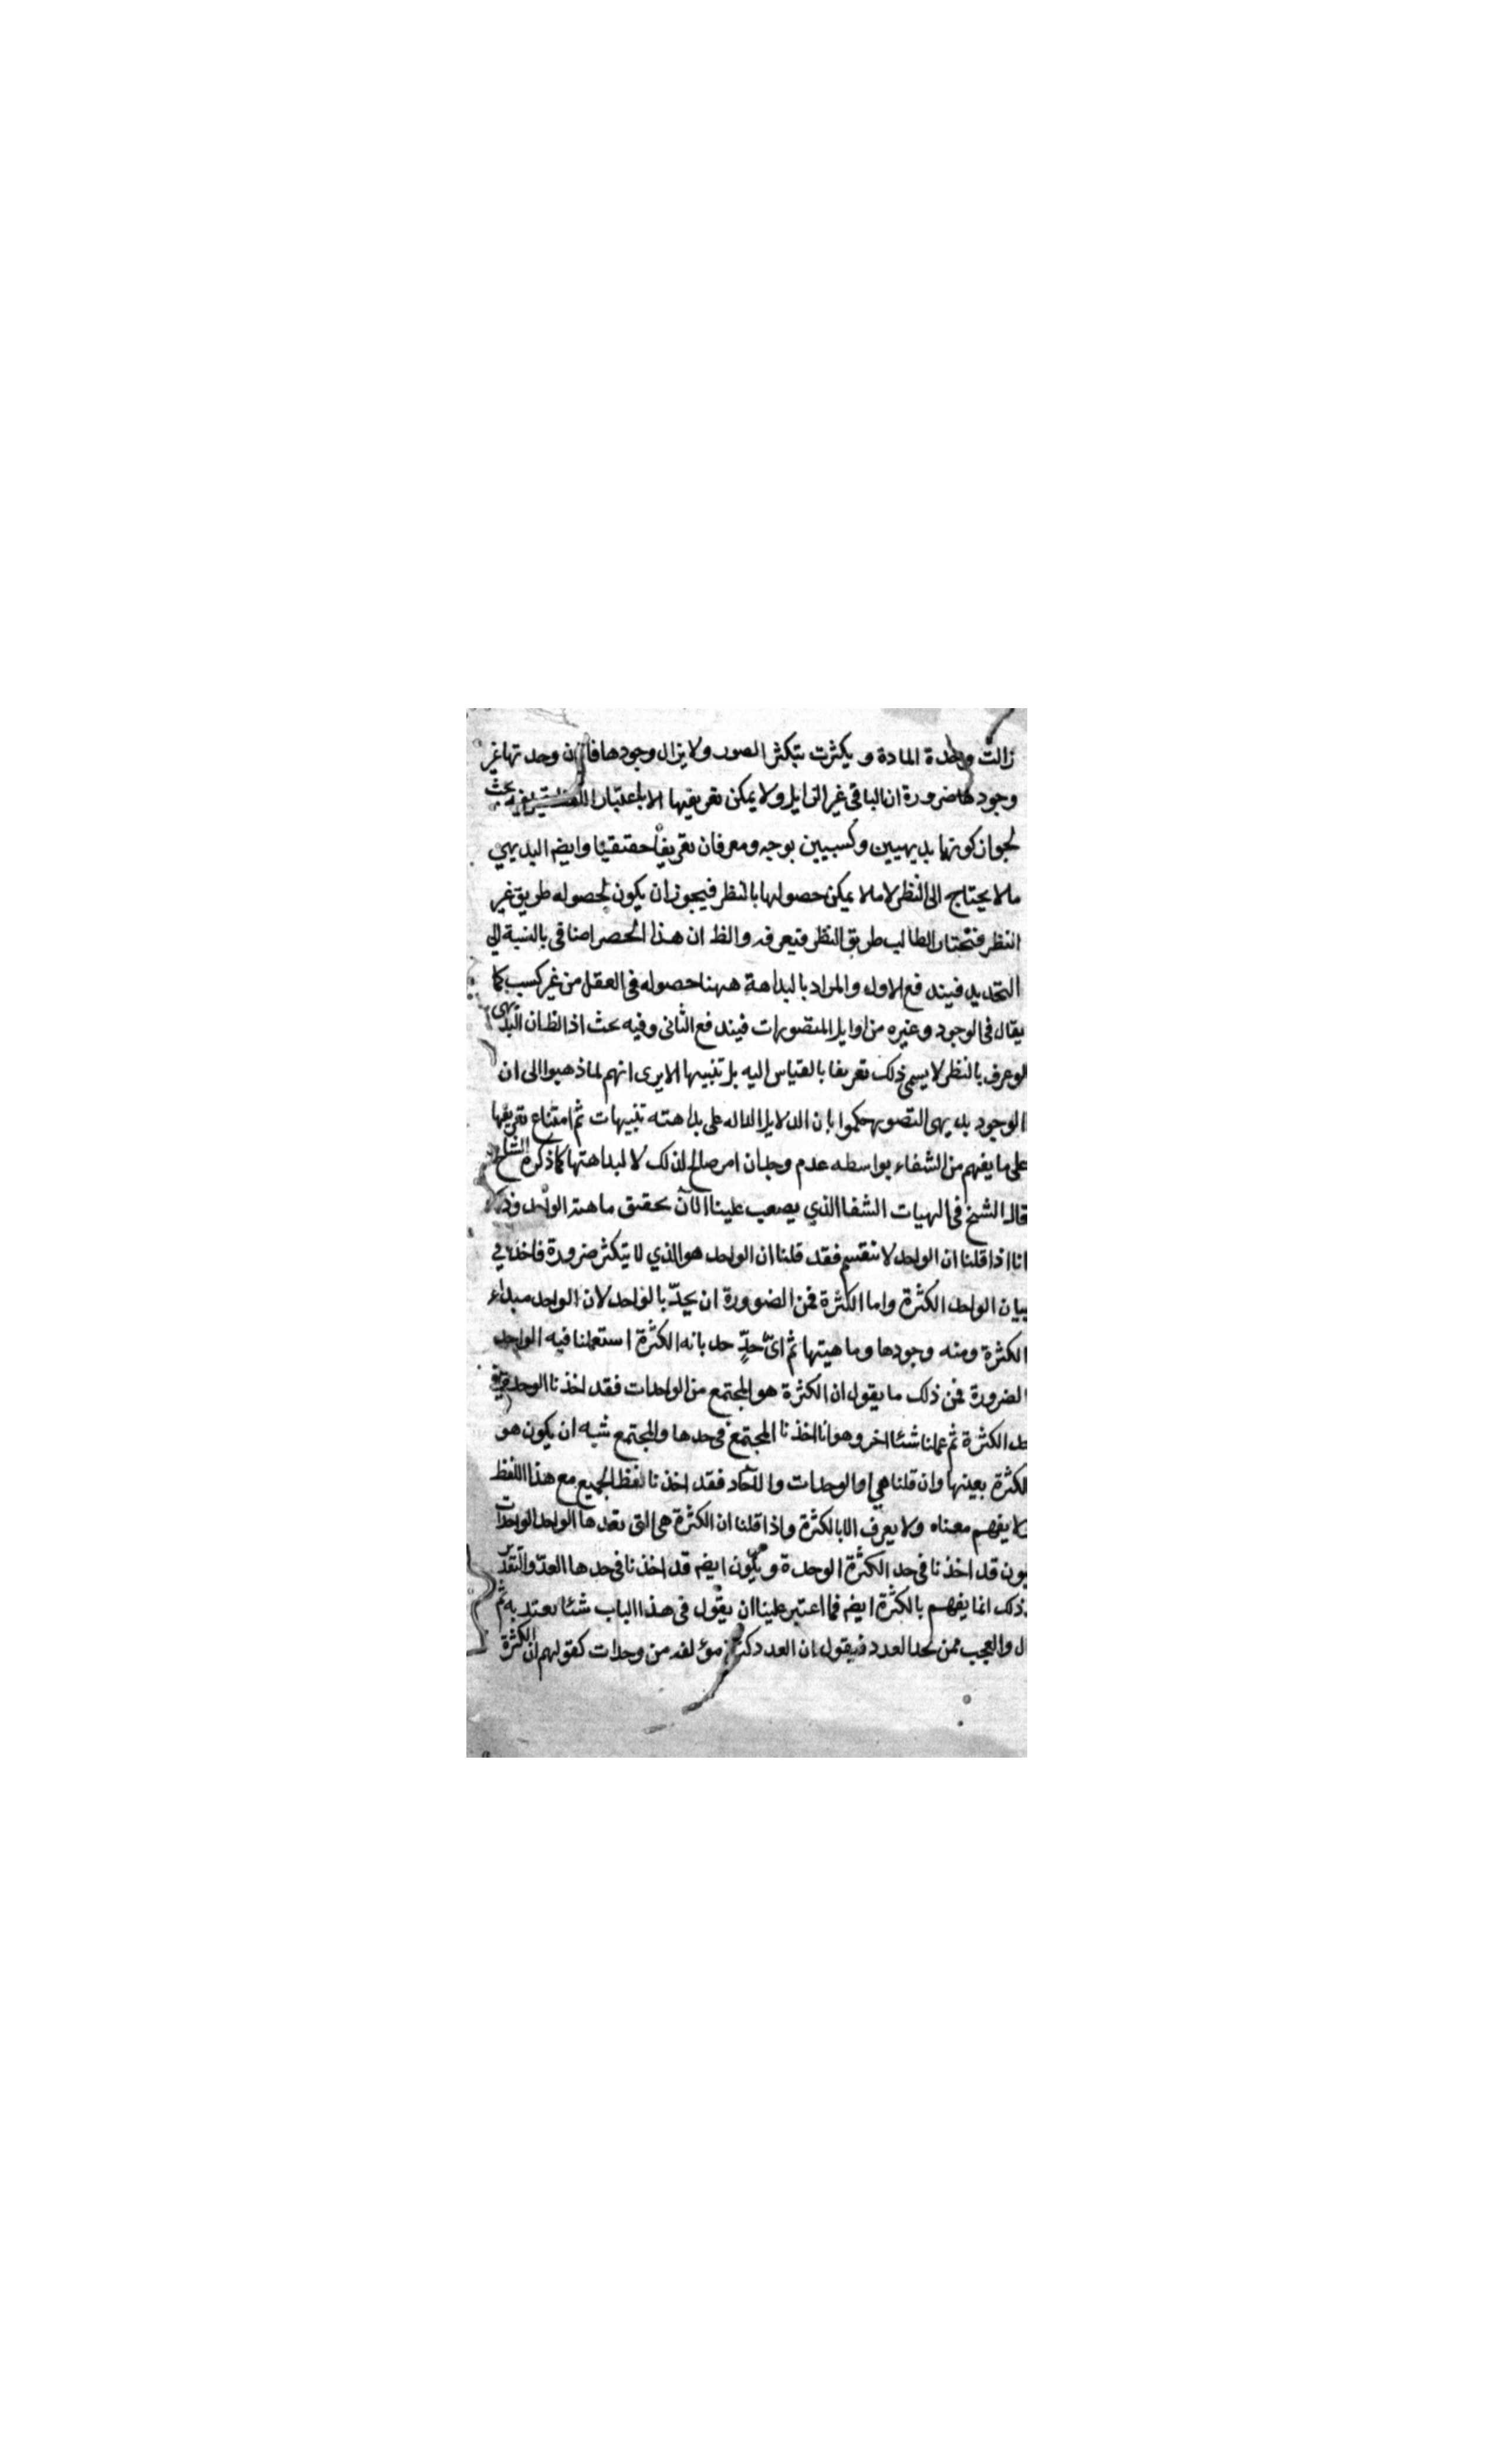 زالت وحدة المادة و يكثرت بتكثر الصور ولا يزال وجودها فاذن وحدتها غير
وجودها ضرورة ان الباقى غير الزايل ولا يمكن تعريفها الا باعتبار اللفظ فيه بحث
لجواز كونها بديهيين وكسبيين بوجه ومعرفان تعريفا حقيقيا وايضم البديهي
ما لا يحتاج الى النظر لا ما لا يمكن حصولها بالنظر فيجوز ان يكون لحصوله طريق غير
النظر فتختار الطالب طريق النظر فيعرفه والظ ان هذا الحصر اضافى بالنسبة الى
التحديد فيندفع الاول والمراد بالبداهة ههنا حصوله فى العقل من غير كسب كما
يقال فى الوجود وغيره من اوايل المتصورات فيندفع الثانى وفيه بحث اذ الظ ان البديهى
لوعرف بالنظر لا يسمى ذلك تعريفا بالقياس اليه بل تنبيها الا يرى انهم لما ذهبوا الى ان
الوجود بديهى التصور حكموا بان الدلايل الداله على بداهته تنبيهات ثم امتناع تعريفها
على ما يفهم من الشفاء بواسطه عدم وجدان امر صالح لذلك لا لبداهتها كما ذكره الشارح
قال الشيخ فى الهيات الشفا الذي يصعب علينا الآن تحقيق ماهية الواحد وذلك
انا اذا قلنا ان الواحد لا ينقسم فقد قلنا ان الواحد هو الذي لا يتكثر ضرورة فاخذنا في
بيان الواحد الكثرة واما الكثرة فمن الضوورة ان يحدّ بالواحد لان الواحد مبداء
الكثرة ومنه وجودها وماهيتها ثم اىّ حدٍّ حد بانه الكثرة استعملنا فيه الواحد
الضرورة فمن ذلك ما يقول ان الكثرة هو المجتمع من الواحدات فقد اخذنا الوحدة في
حد الكثرة ثم عملنا شئا اخر وهو انا اخذنا المجتمع فى حدها والمجتمع شبه ان يكون هو
لكثرة بعينها وان قلنا هي او الوحدات والآحاد فقد اخذنا لفظ الجميع مع هذا اللفظ
لا يفهم معناه ولا يعرف الا بالكثرة واذا قلنا ان الكثرة هى التى تعدها الواحد الواحدات
يون قد اخذنا فى حد الكثرة الوحدة ويكون ايضم قد اخذنا فى حدها العدّ والتقدير
ذلك انما يفهم بالكثرة ايضم فما اعتبر علينا ان يقول فى هذا الباب شئا يعتد به ثم
ل والعجب ممن يحد العدد فيقول ان العدد كثرة مؤلفه من وحدات كقولهم ان الكثرة